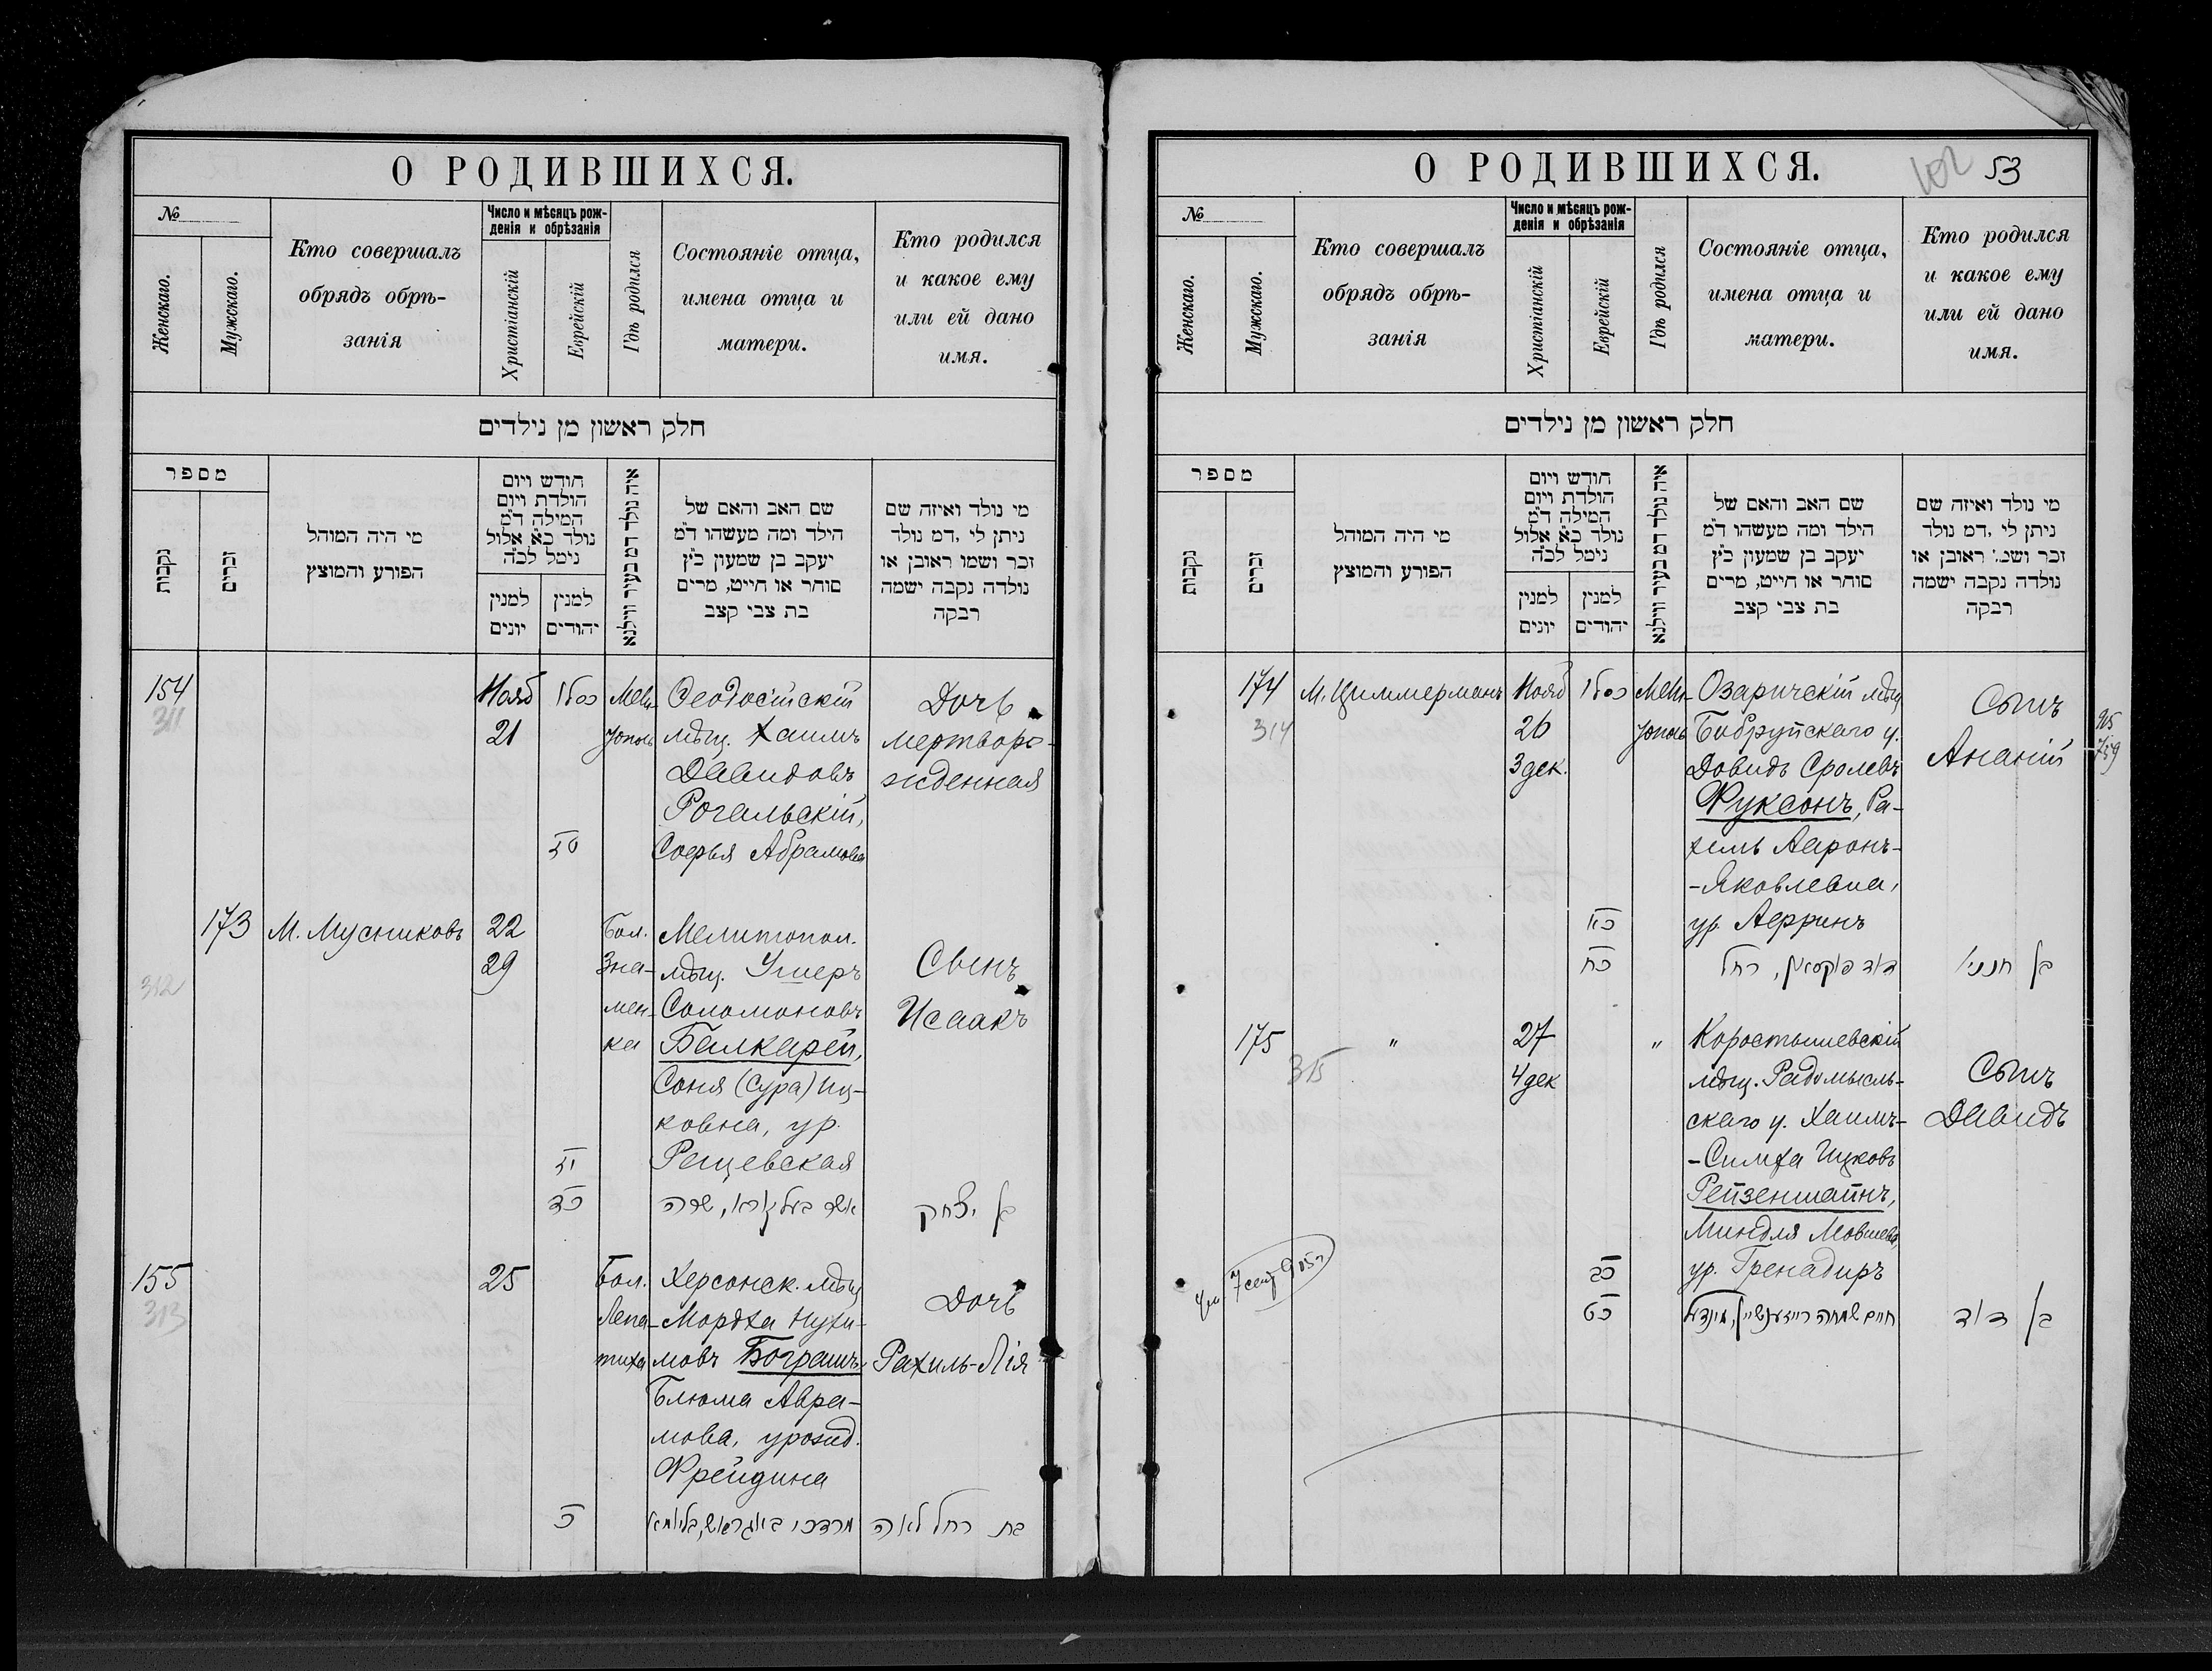 О РОДИВШИХСЯ.
№
Женскаго.
Мужскаго.
Кто совершалъ
обрядъ обрѣ-
занія
Число и мѣсяцъ рож-
денія и обрѣзанія
Христіанскій
Еврейскій
Гдѣ родился
Состояніе отца,
имена отца и
матери.
Кто родился
и какое ему
или ей дано
имя.
חלק ראשון מן נילדים
מספר
נקבות
זכרים
מי היה המוהל
הפורע והמוצץ
חודש ויום
הולדת ויום
המילה ד״מ
נולד כ״א אלול
נימל לכ״ה
למנין
יונים
למנין
יהודים
איה נולד דמ בעיר ווילנא
שם האב והאם של
הילד ומה מעשהו ד״מ
יעקב בן שמעון כ״ץ
סוחר או חייט, מרים
בת צבי קצב
מי נולד ואיזה שם
ניתן לי ,דמ נולד
זכר ושמו ראובן או
נולדה נקבה ישמה
רבקה
154
311
Нояб
21
כסלו
Мели-
тополь
Ѳеодосійскій
мѣщ. Хаимъ
Давидовъ
Рогальскій,
Софья Абрамова
Дочь
мертворо-
жденная
173
312
М. Мусниковъ
22
29
Бол.
Зна-
мен-
ка
Мелитопол.
мѣщ. Ушеръ
Соломоновъ
Балкарей,
Соня (Сура) Иц-
ковна, ур.
Рещевская
Сынъ
Исаакъ
יז
כד
אשר באלקאריי, שרה
בן יצחק
155
313
25
Бол.
Лепа-
тиха
Херсонск. мѣщ
Мордха Нухи-
мовъ Бограшъ,
Блюма Авра-
мова, урожд.
Фрейдина
Дочь
Рахиль-Лія
כ
מרדכי באגראש, בליומא
בת רחל לאה
О РОДИВШИХСЯ.
102 53
№
Женскаго.
Мужскаго.
Кто совершалъ
обрядъ обрѣ-
занія
Число и мѣсяцъ рож-
денія и обрѣзанія
Христіанскій
Еврейскій
Гдѣ родился
Состояніе отца,
имена отца и
матери.
Кто родился
и какое ему
или ей дано
имя.
חלק ראשון מן נילדים
מספר
נקבות
זכרים
מי היה המוהל
הפורע והמוצץ
חודש ויום
הולדת ויום
המילה ד״מ
נולד כ״א אלול
נימל לכ״ה
למנין
יונים
למנין
יהודים
איה נולד דמ בעיר ווילנא
שם האב והאם של
הילד ומה מעשהו ד״מ
יעקב בן שמעון כ״ץ
סוחר או חייט, מרים
בת צבי קצב
מי נולד ואיזה שם
ניתן לי ,דמ נולד
זכר ושמ: ראובן או
נולדה נקבה ישמה
רבקה
174
314
М. Циммерманъ
Нояб
26
3 дек.
כסלו
Мели-
тополь
Озаричскій мѣщ
Бобруйскаго у.
Довидъ Сролевъ
Фуксонъ, Ра-
хель Ааронъ-
-Яковлевна,
ур. Аерринъ
Сынъ
Ананій
כא
כח
דוד פוקסאן, רחל
בן חנניי
175
315
"
27
4 дек
"
Коростышевскій
мѣщ. Радомысль-
скаго у. Хаимъ-
-Симха Ицковъ
Рейзенштейнъ,
Миндля Мовшева,
ур. Гренадиръ
Сынъ
Давидъ
7 сент 905 г
כב
כט
חיים שמחה רייזענשטיין, מינדל
בן דוד